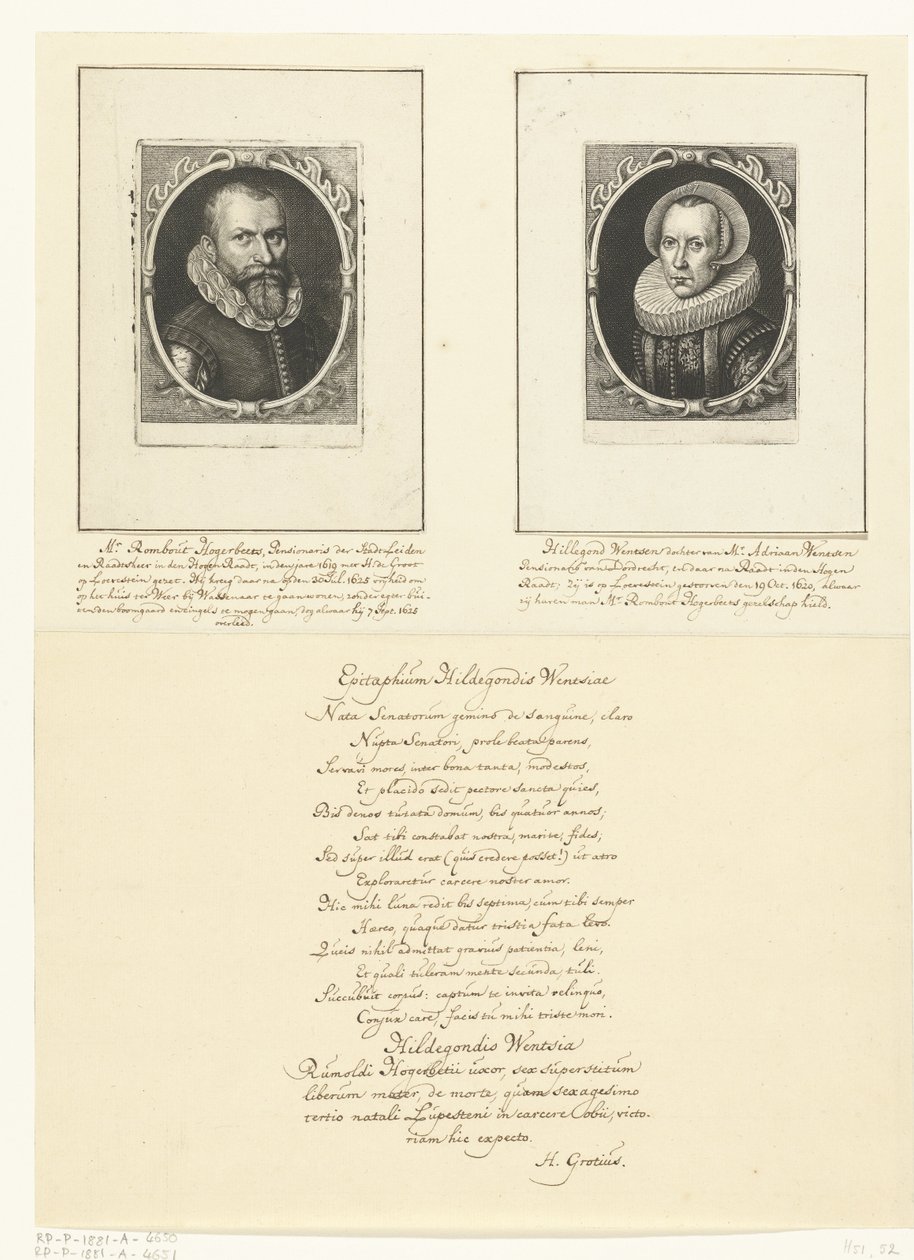 Mr. Rombout Hogerbeets, Pensionaris der Stadt Leiden
en Raadtsheer in den Hogen Raadt, in den jare 1619 met H. de Groot
op Loevestein gezet. Hij kreeg daar na op den 30 Jul. 1625 vrijheid om
op het huis te Weer bij Wassenaar te gaan wonen, zonder egter bui-
ten den boomgaard en cingels te mogen gaan, dog alwaar hij 7 Sept. 1625
overleed.
Hillegond Wentsen dochter van Mr. Adriaan Wentsen
Pensionaris van Dordrecht, en daar na Raadt in den Hogen
Raadt; Zij is op Loevestein gestorven den 19 Oct. 1620, alwaar
zij haren man Mr. Rombout Hogerbeets gezelschap hield.
Epitaphium Hildegondis Wentsiae
Nata Senatorum gemino de sanguine, claro
Nupta Senatori, prole beata parens,
Servavi mores, inter bona tanta, modestos,
Et placido sedit pectore sancta quies,
Bis denos tutata domum, bis quatuor annos;
Sat tibi constabat nostra, marite, fides;
Sed super illud erat (quis credere posset!) ut atro
Exploraretur carcere noster amor.
Hic mihi luna redit bis septima, cum tibi semper
Haereo, quaque datur tristia fata levo.
Queis nihil admittat gravius patientia, leni,
Et quali tuleram mente secunda, tuli.
Succubuit corpus: captum te invita relinquo,
Conjux care, facis tu mihi triste mori.
Hildegondis Wentsia
Rumoldi Hogerbetii uxor, sex superstitum
liberum mater, de morte, quam sexagesimo
tertio natali Lupesteni in carcere obii, victo-
riam hic expecto.
H. Grotius.
RP-P-1881-A-4650
RP-P-1881-A-4651
H51, 52